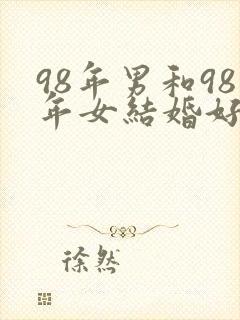 98年男和98
年女結婚好
徐然